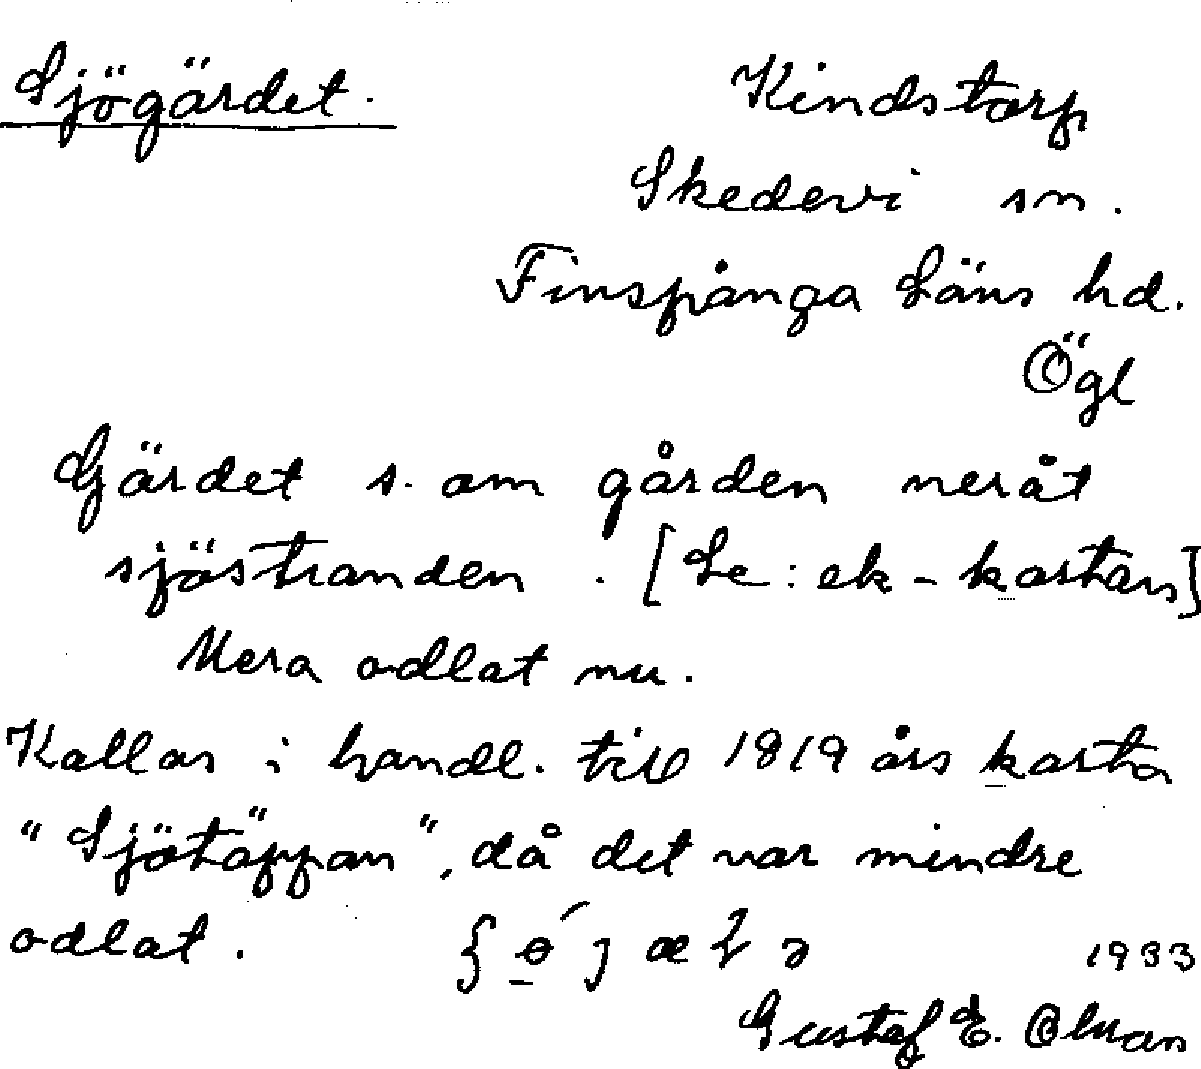 Sjögärdet.
Kindstorp
Skedevi sn.
Finspånga Läns hd.
Ögl
Gärdet s. om gården neråt
sjöstranden. [Se: ek-kartan]
Mera odlat nu.
Kallas i handl. till 1819 års karta
"Sjötäppan", då det var mindre
odlat.
1933
Gustaf E.